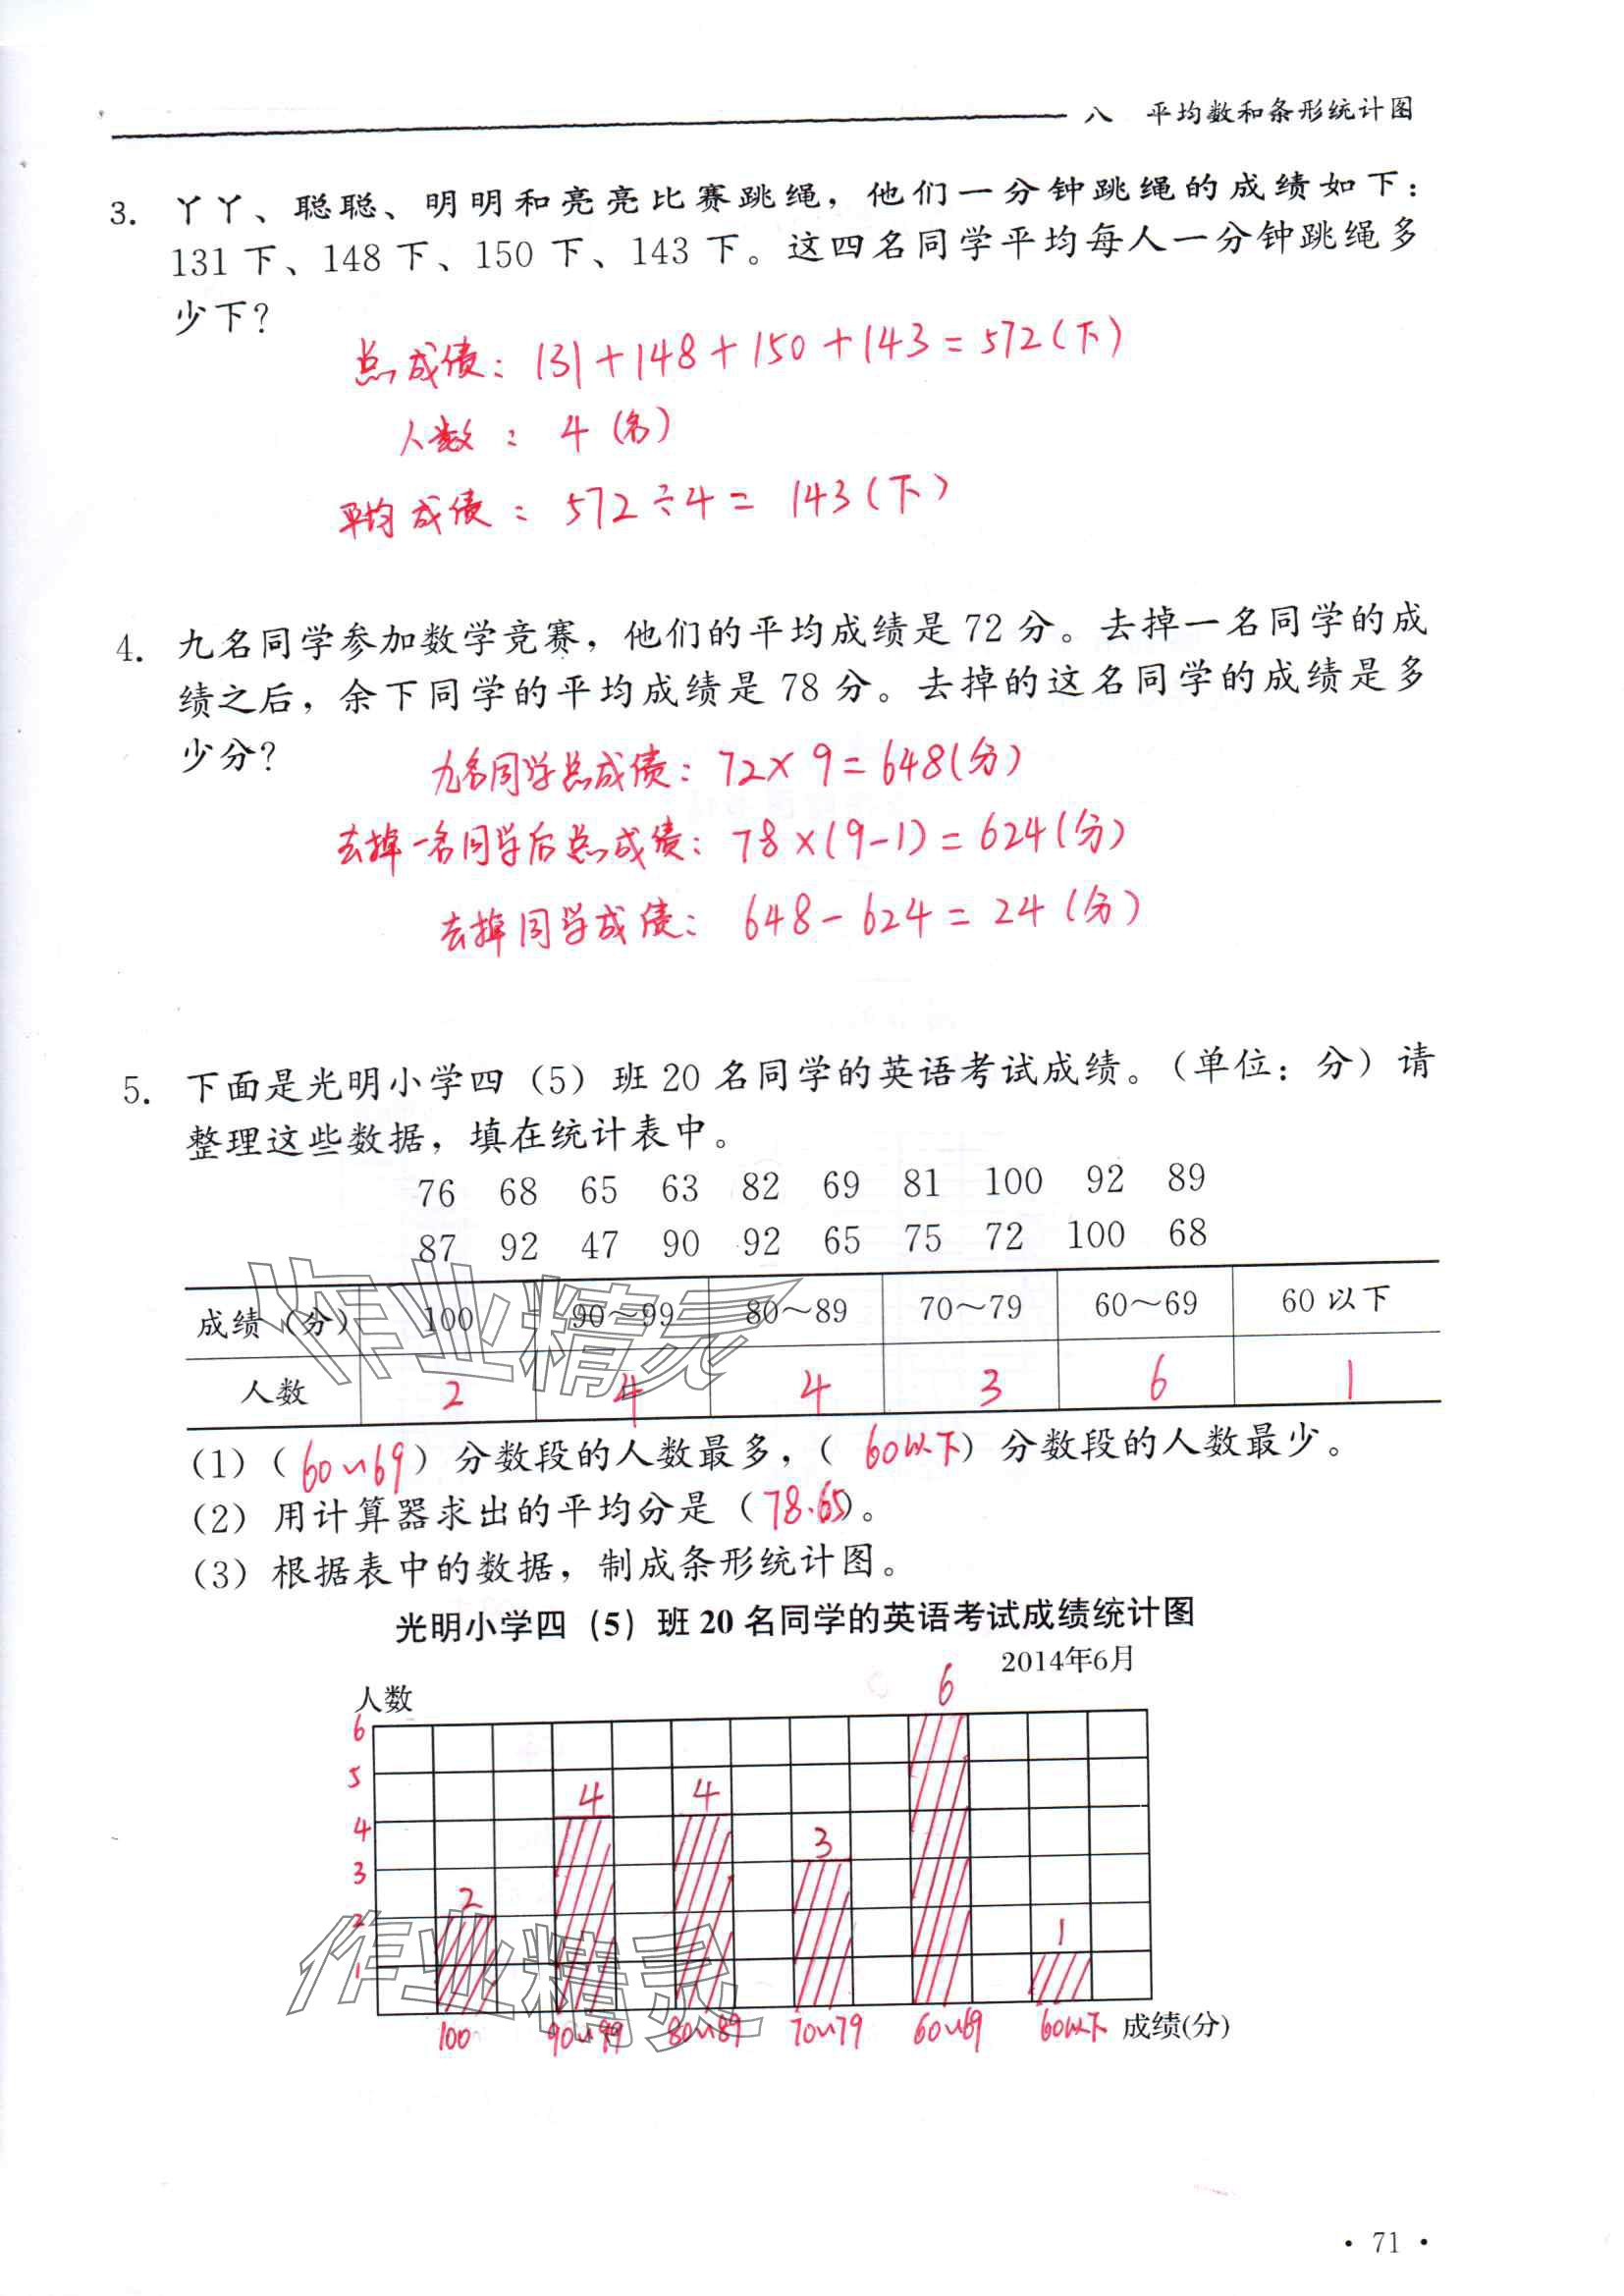 八 平均数和条形统计图
3. 丫丫、聪聪、明明和亮亮比赛跳绳，他们一分钟跳绳的成绩如下：
131 下、148 下、150 下、143 下。这四名同学平均每人一分钟跳绳多
少下？
总成绩：131+148+150+143=572(下)
人数：4(名)
平均成绩：572÷4=143(下)
4. 九名同学参加数学竞赛，他们的平均成绩是 72 分。去掉一名同学的成
绩之后，余下同学的平均成绩是 78 分。去掉的这名同学的成绩是多
少分？
九名同学总成绩：72×9=648(分)
去掉一名同学后总成绩：78×(9-1)=624(分)
去掉同学成绩：648-624=24(分)
5. 下面是光明小学四（5）班 20 名同学的英语考试成绩。（单位：分）请
整理这些数据，填在统计表中。
76 68 65 63 82 69 81 100 92 89
87 92 47 90 92 65 75 72 100 68
成绩（分） 100 90～99 80～89 70～79 60～69 60 以下
人数 2 4 4 3 6 1
(1)（60~69）分数段的人数最多，（60以下）分数段的人数最少。
(2) 用计算器求出的平均分是（78.65）。
(3) 根据表中的数据，制成条形统计图。
光明小学四（5）班 20 名同学的英语考试成绩统计图
2014年6月
人数
6
6
5
4 4
4
3
3
2
2
1
1
100 90~99 80~89 70~79 60~69 60以下 成绩(分)
作业精灵
作业精灵
· 71 ·